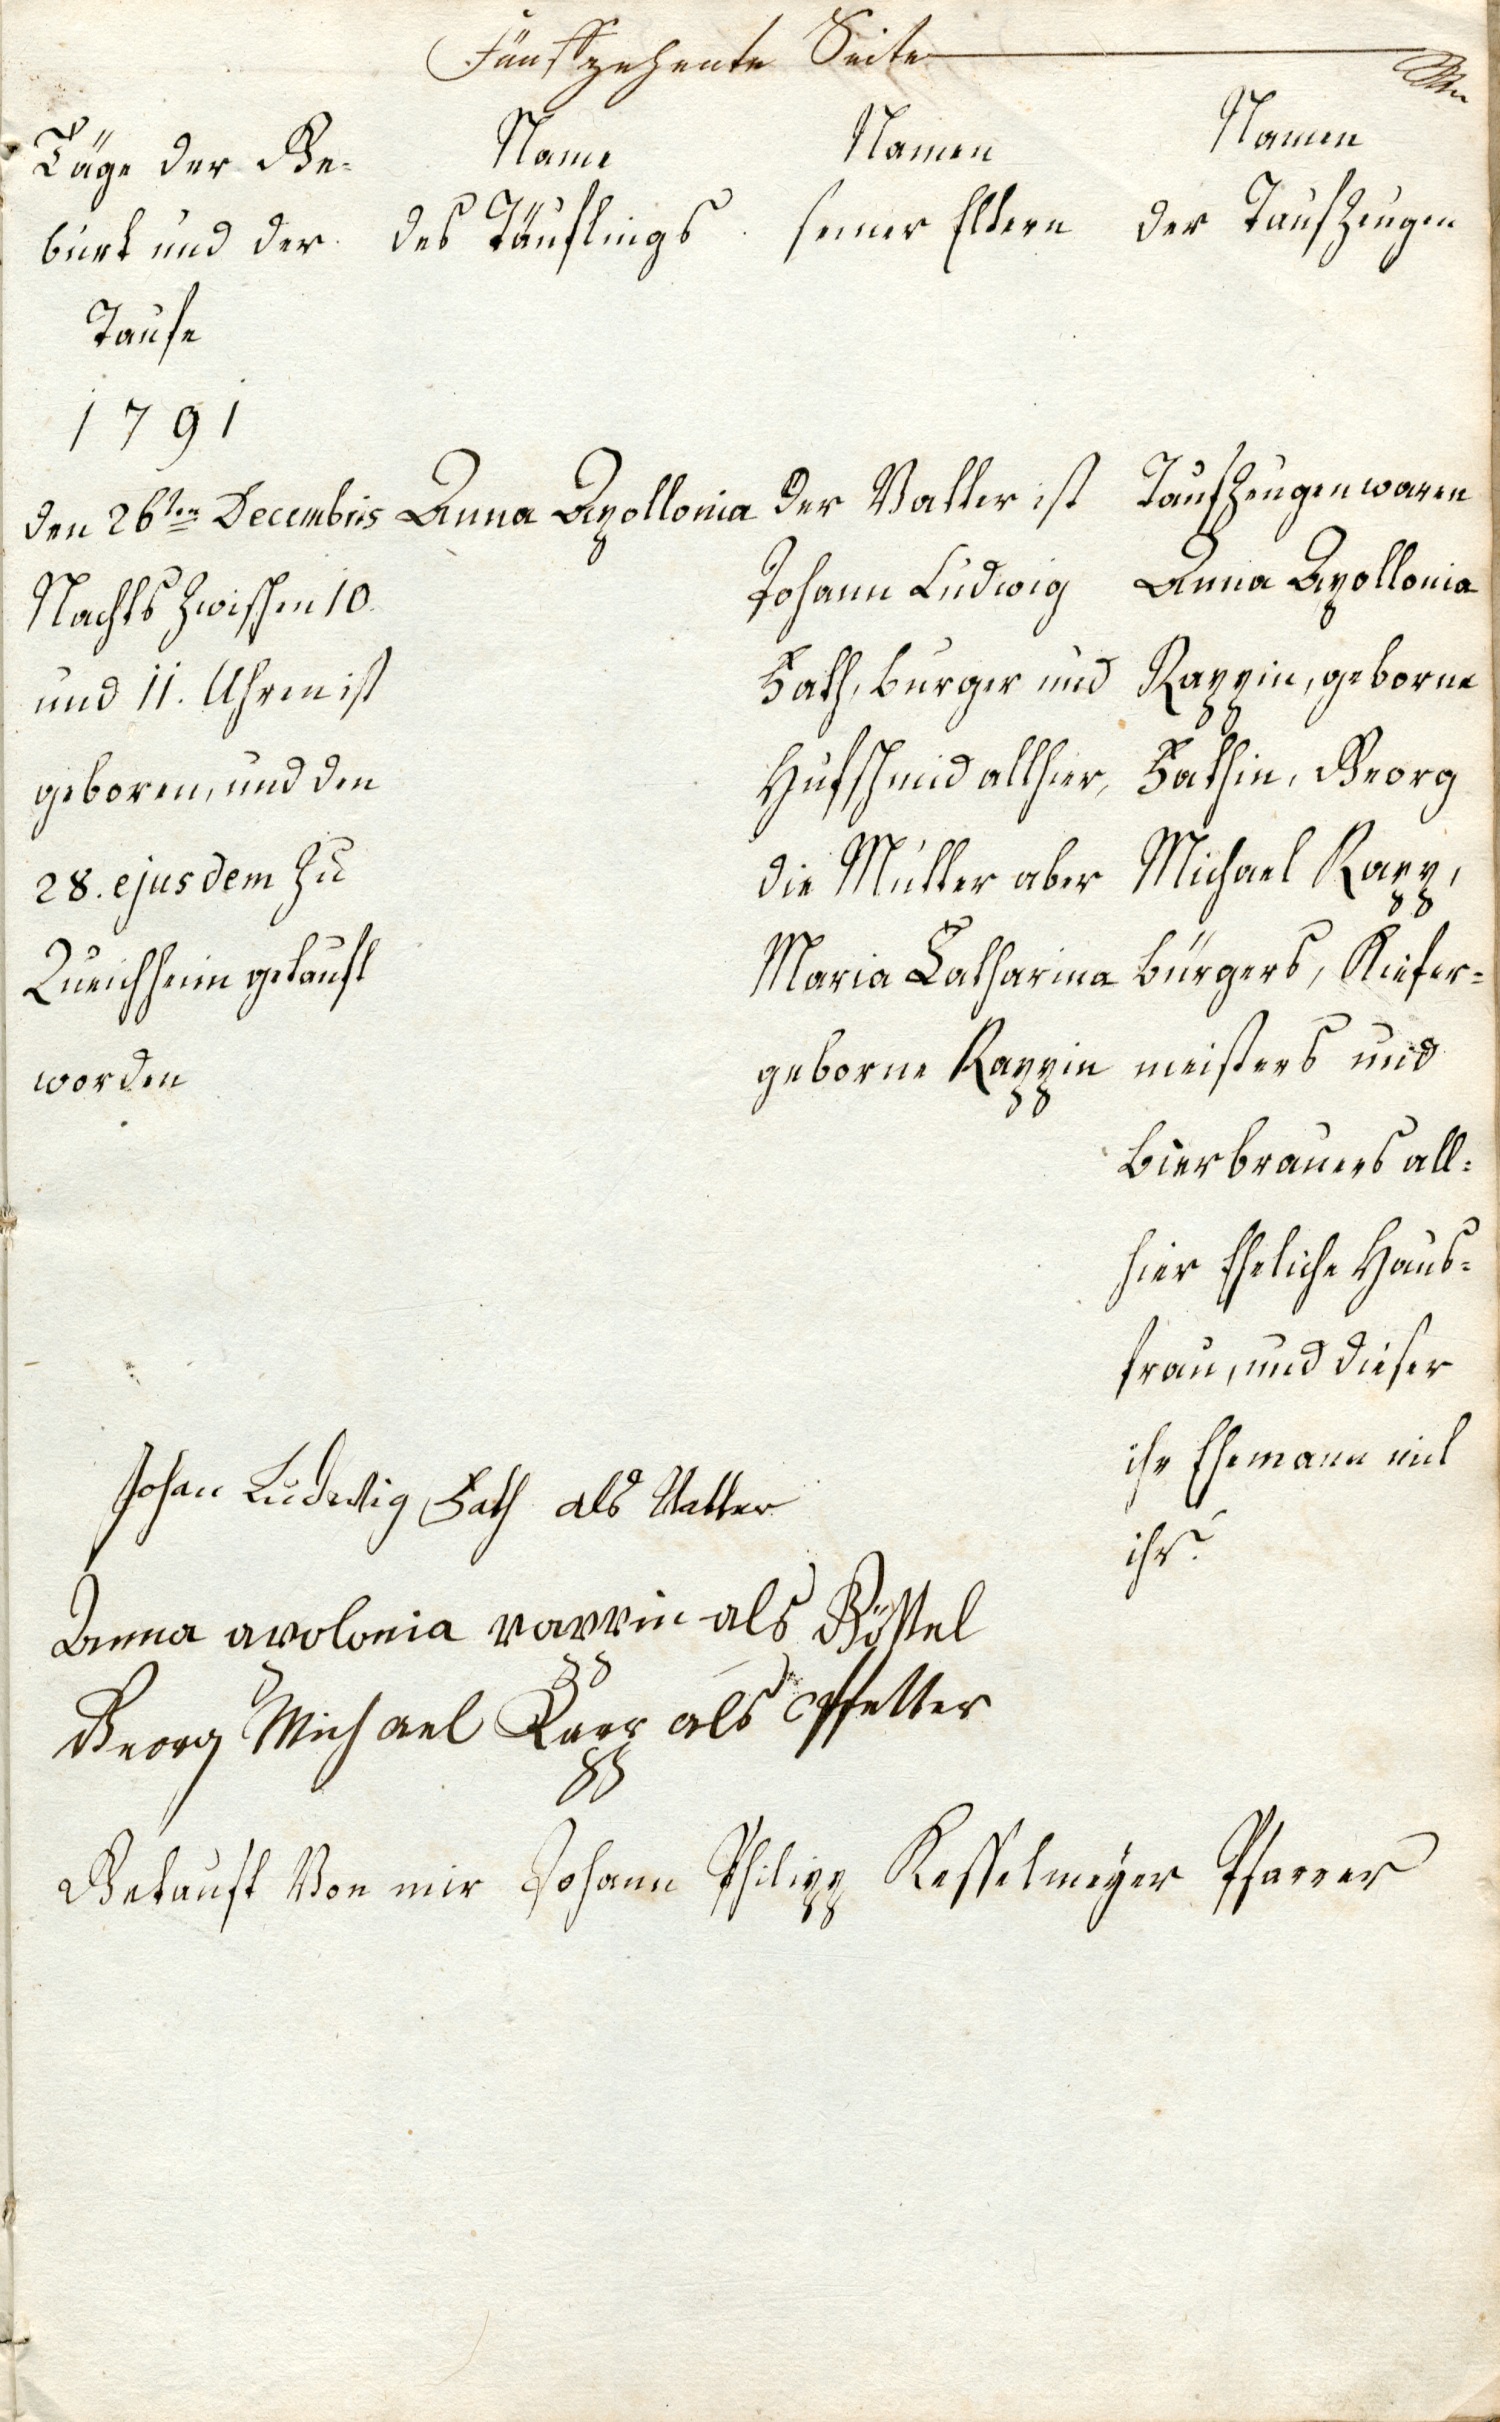 Fünffzehente Seite
Täge der Ge-
burt und der
Taufe
1791
den 26ten Decembris
Nachts zwischen 10.
und 11. Uhren ist
geboren, und den
28. ejusdem zu
Queichheim getauft
worden
Name
des Täuflings
Anna Apollonia
Namen
seiner Eltern
der Vatter ist
Johann Ludwig
Hath, burger und
Hufschmid allhier,
die Mutter aber
Maria Catharina
geborne Rappin
Namen
der Taufzeugen
Taufzeugen waren
Anna Apollonia
Rappin, geborne
Hathin, Georg
Michael Rapp,
bürgers, Kiefer-
meisters und
bierbrauers all-
hier Eheliche Haus-
frau, und dieser
ihr Ehemann mit
ihr.
Johan Ludwig Hath als Vatter
Anna apolonia rappin als Göttel
Georg Michael Rapp als Pfetter
Getauft Von mir Johann Philipp Kesselmeyer Pfarrer